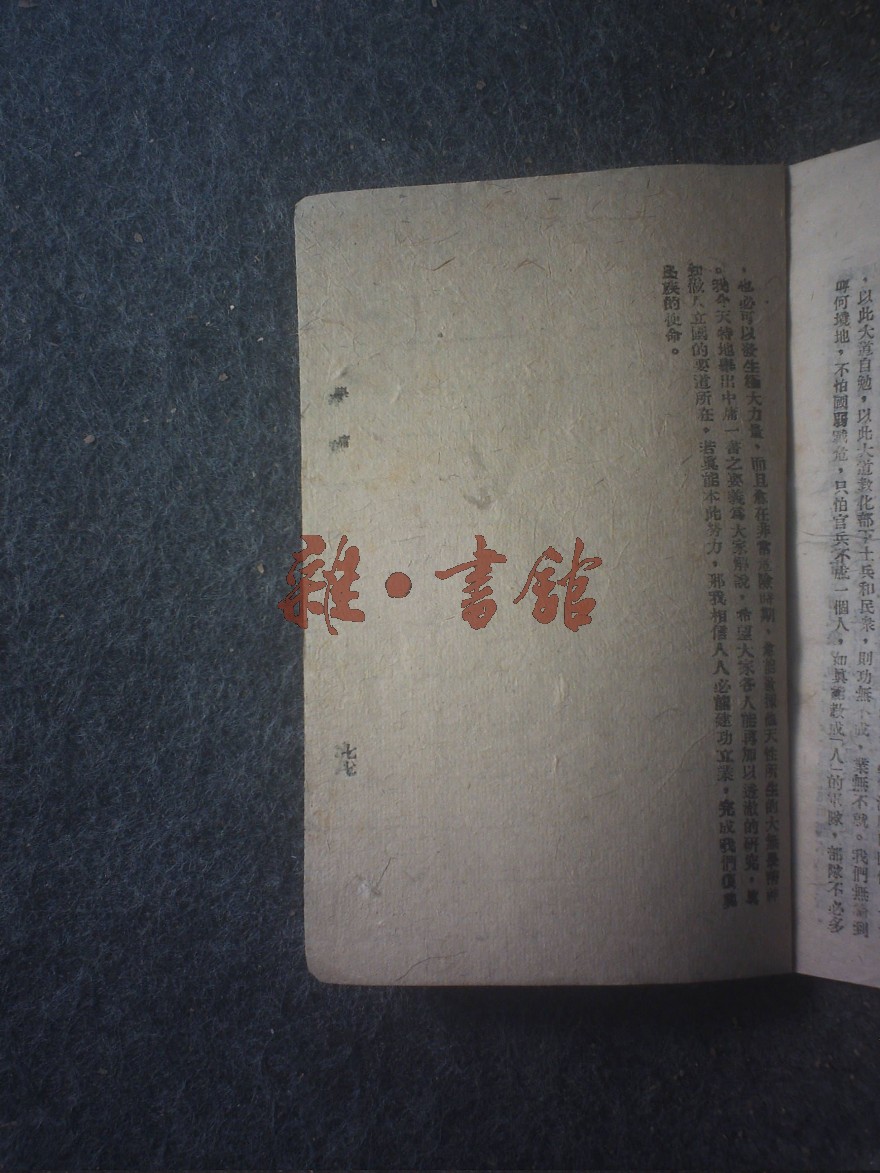 ，以此大道自勉，以此大道敎化部下士兵和民衆，則功無不成，業無不就。我們無論到
何境地，不怕國弱，只怕官兵不成一個人，如眞能敎成「人」的軍隊，部隊不必多
，也必可以發生極大力量，而且在非常危險時期，天性所生的大無畏精神
。我今天特地舉出中庸一書之要義爲大家解說，希望大家各人能再加以透澈的研究，
做人立國的要道所在。若眞能本此努力，那我相信人人必能建功立業，完成我們復興
民族的使命。
雜·書館